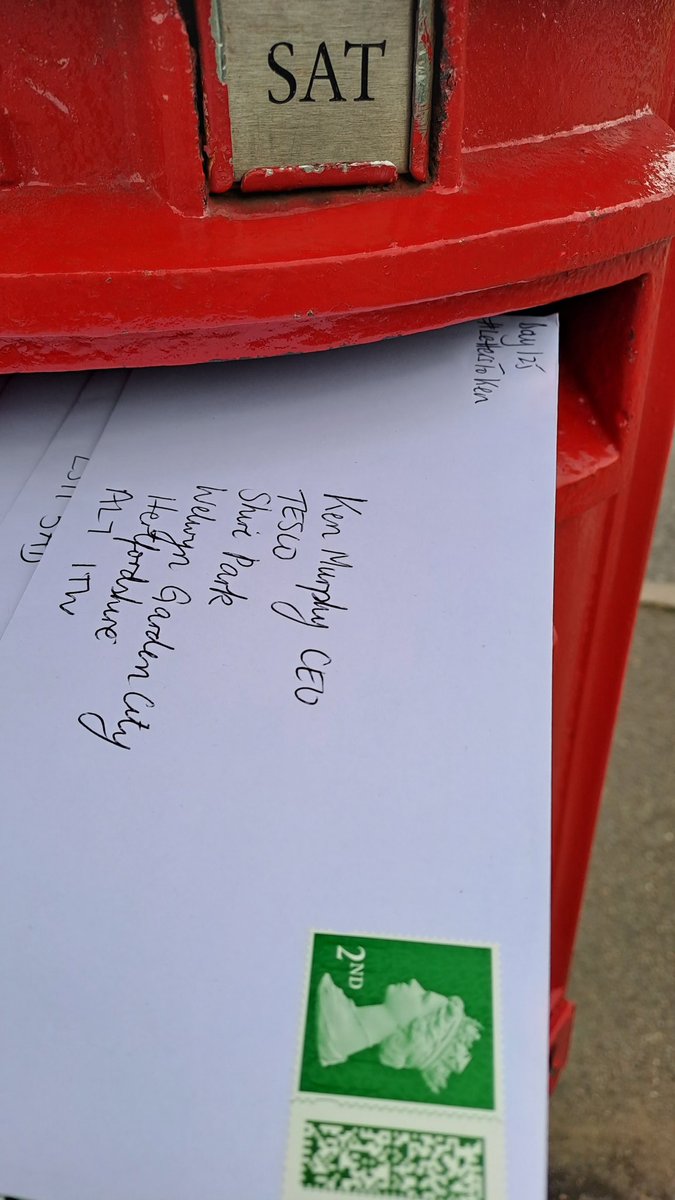 SAT
Day 125
#LettersToKen
Ken Murphy CEO
TESCO
Shire Park
Welwyn Garden City
Hertfordshire
AL7 1TW
2ND